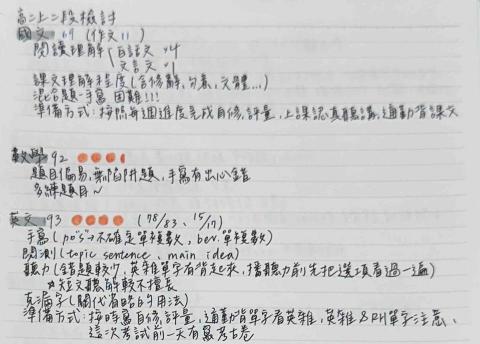 高二上二段檢討
國文 69 (作文11)
閱讀理解 白話文 x4
文言文 x1
課文理解程度(含修辭,句意,文體...)
混合題:手寫困難!!!
準備方式:按照每週進度完成自修,評量,上課認真聽講,通勤背課文
數學 92
題目偏易,無陷阱題,手寫有出心錯
多練題目~
英文 93 (78/83、15/17)
手寫(po's→不確定單複數,bev.單複數)
閱測(topic sentence、main idea)
聽力(錯題較少,英雜單字有背起來,播聽力前先把選項看過一遍)
*短文聽解較不擅長
克漏字(關代省略的用法)
準備方式:按時寫自修,評量,通勤背單字看英雜,英雜&RH單字注意、
這次考試前一天有寫考古卷